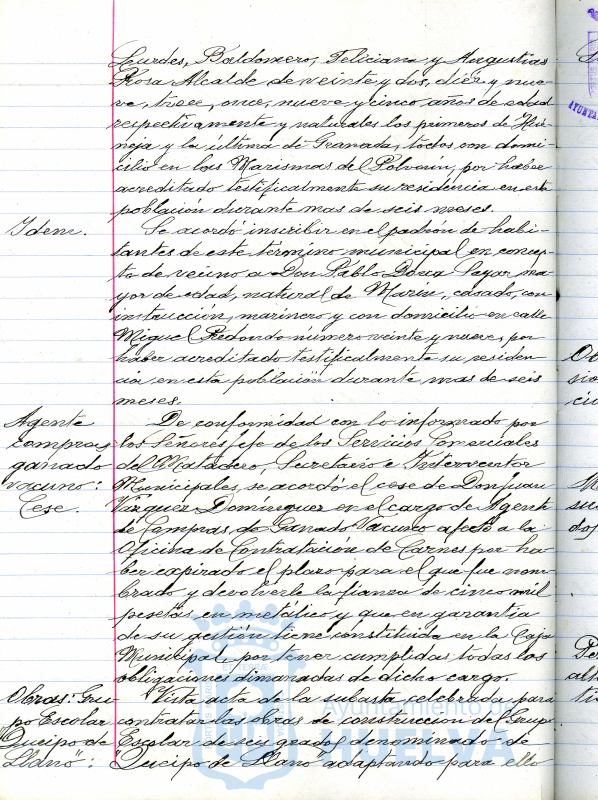 Lourdes, Baldomero, Feliciana y Angustias
Rosa Alcalde de veinte y dos, diez y nue-
ve, trece, once, nueve y cinco años de edad
respectivamente y naturales los primeros de Hue-
neja y la última de Granada, todos con domi-
cilio en las Marismas del Polvorín, por haber
acreditado testificalmente su residencia en esta
población durante mas de seis meses.
Idem. Se acordó inscribir en el padrón de habi-
tantes de este término municipal en concep-
to de vecino a Don Pablo Layar ma-
yor de edad, natural de Marín, casado, con
instrucción, marinero y con domicilio en calle
Miguel Redondo número veinte y nueve, por
haber acreditado testificalmente su residen-
cia en esta población durante mas de seis
meses.
Agente De conformidad con lo informado por
compras los Señores Jefe de los Servicios Comerciales
ganado del Matadero, Secretario e Interventor
vacuno: Municipales, se acordó el cese de Don Juan
Cese. Vázquez Domínguez en el cargo de Agente
de Compras de Ganado Vacuno afecto a la
Oficina de Contratación de Carnes por ha-
ber expirado el plazo para el que fue nom-
brado y devolverle la fianza de cinco mil
pesetas en metálico y que en garantía
de su gestión tiene constituida en la Caja
Municipal, por tener cumplidas todas las
obligaciones dimanadas de dicho cargo.
Obras: Gru- Vista acta de la subasta celebrada para
po Escolar contratar las obras de construcción del Grupo
Queipo de Escolar de seis grados denominado de
Llano": "Queipo de Llano" adaptando para ello
Ayuntamiento de
HUELVA